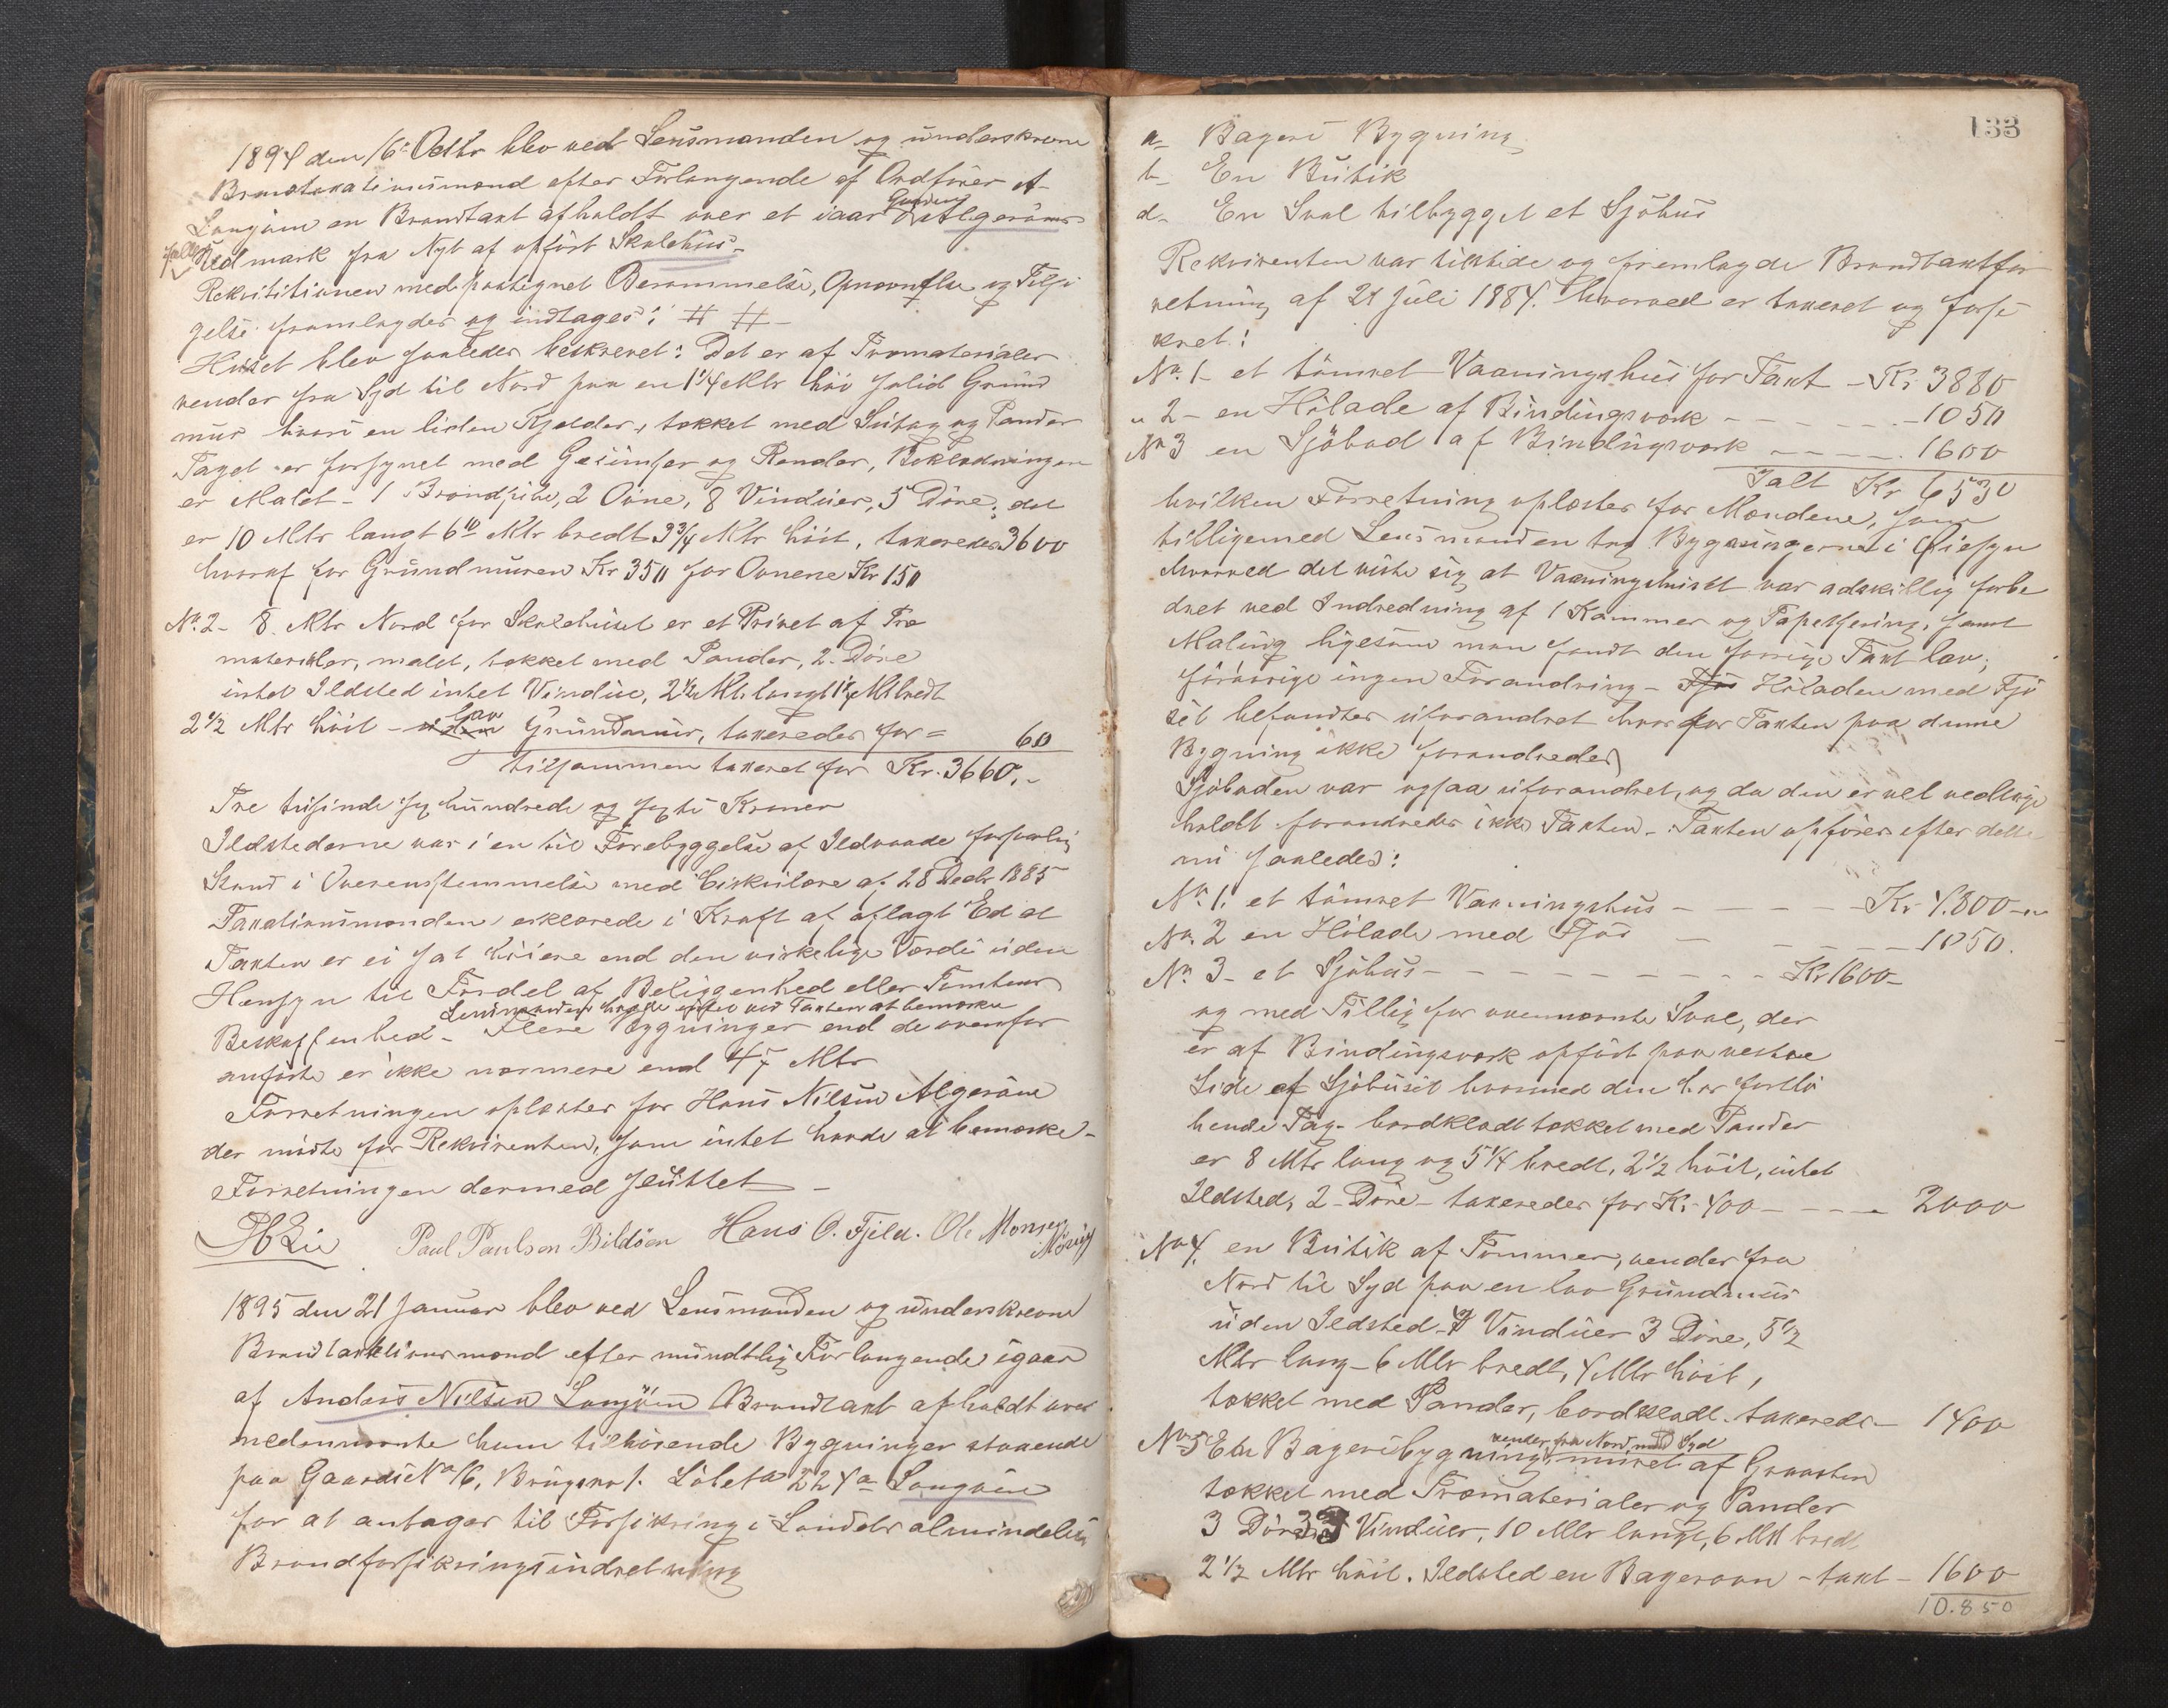 1894 den 16de Octbr blev ved Lensmanden og underskrevne
Brandtaxationsmænd efter Forlangende af Ordfører A.
Langøen en Brandtaxt afholdt over et iaar paa Gaarden Algerøens
fælles Udmark fra Nyt af opført Skolehus
Rekvisitionen med paategnet Berammelse, Opnævnelse og Tilsi
gelse fremlagdes og indtages: # #
Huset blev saaledes beskrevet: Det er af Træmaterialer
vender fra Syd til Nord paa en 1 1/4 Mtr høi solid Grund
mur hvori en liden Kjelder, tækket med Sutag og Pander
Taget er forsynet med Gesimser og Render, Beklædningen
er Malet - 1 Brandpibe, 2 Ovne, 8 Vinduer, 5 Døre; det
er 10 Mtr langt 6 10 Mtr bredt 3 3/4 Mtr höit, taxeredes 3600
hvoraf for Grundmuren Kr 350 for Ovnene Kr 150
No 2 - 8 Mtr Nord for Skolehuset er et Privet af Træ
materialer, malet, tækket med Pander, 2 Döre
intet Ildsted intet Vindue, 2 1/2 Mtr langt 1 1/2 Mtr bredt
2 1/2 Mtr höit - uden lav Grundmur, taxeredes for = 60
tilsammen taxeret for Kr. 3660.-
Tre tusinde sex hundrede og sexti Kroner
Ildstederne var i en til Forebyggelse af Ildvaade forsvarlig
Stand i Overensstemmelse med Cirkulære af 28 Decbr 1885
Taxationsmænden erklærede i Kraft af aflagt Ed at
Taxten er ei sat höiere end den virkelige Værdi uden
Hensyn til Fordel af Beliggenhed eller Tomtens
Lensmanden havde intet ved Taxten at bemærke
Beskaffenhed - Flere Bygninger end de ovenfor
anförte er ikke nærmere end 47 Mtr
Forretningen oplæstes for Hans Nilsen Algerøen
der mødte for Rekvirenten, som intet havde at bemærke -
Forretningen dermed sluttet -
Paul Paulsen Bildöen Hans O. Fjeld. Ole Monsen
1895 den 21 Januar blev ved Lensmanden og underskrevne
Brandtaxtionsmænd efter mundtlig Forlangende igaar
af Anders Nilsen Langöen Brandtaxt afholdt over
nedennævnte ham tilhörende Bygninger staaende
paa Gaards No 16, Brugsno 1. Löbeno 224a Langøen
for at antages til Forsikring i Landets almindelige
Brandforsikringsindretning
133
a- Bageri Bygning
b- En Butik
d- En Sval tilbygget et Sjöhus
Rekvirenten var tilstede og fremlagde Brandtaxtfor
retning af 21 Juli 1884. hvorved er taxeret og forsi
kret:
No 1 - et tömret Vaaningshus for Taxt - Kr 3880
" 2 - en Hölade af Bindingsværk - - - - 1050
No 3 en Sjöbod af Bindingsværk - - - - 1600
Ialt Kr 6530
hvilken Forretning oplæstes for Mændene, som
tilligemed Lensmanden tog Bygningerne i Øiesyn
hvorved det viste sig at Vaaningshuset var adskillig forbe
dret ved Indredning af 1 Kammer og Tapetsering, samt
Maling ligesom man fandt den forrige Taxt lav;
forövrigt ingen Forandring - Fjös Höladen med Fjö
set befandtes uforandret hvorfor Taxten paa denne
Bygning ikke forandredes
Sjöboden var ogsaa uforandret, og da den er vel vedlige
holdt forandredes ikke Taxten - Taxten opføres efter dette
nu saaledes:
No 1. et tömret Vaaningshus - - - - Kr 4.800 -
No 2 en Hölade med Fjös - - - - 1050.
No 3 - et Sjöhus - - - - - - Kr 1600 -
og med Tillæg for ovennævnte Sval, der
er af Bindingsværk opfört paa vestre
Side af Sjöhuset hvormed den har fortlö
bende Tag - bordklædt tækket med Pander
er 8 Mtr lang og 5 1/4 bredt, 2 1/2 höit, intet
Ildsted, 2 Döre - taxeredes for Kr 400 - - - 2000
No 4. en Butik af Tömmer, vender fra
Nord til Syd paa en lav Grundmur
uden Ildsted - Vinduer 3 Döre, 5 1/2
Mtr lang - 6 Mtr bredt, 4 Mtr höit,
tækket med Pander, bordklædt. taxeredes - 1400
vender fra Nord mod Syd
No 5 En Bageribygning, muret af Graasten
tækket med Træmaterialer og Pander
3 Döre, 3 Vinduer, 10 Mtr langt, 6 Mtr bredt
2 1/2 Mtr höit. Ildsted en Bagerovn - taxt - 1600
10.850